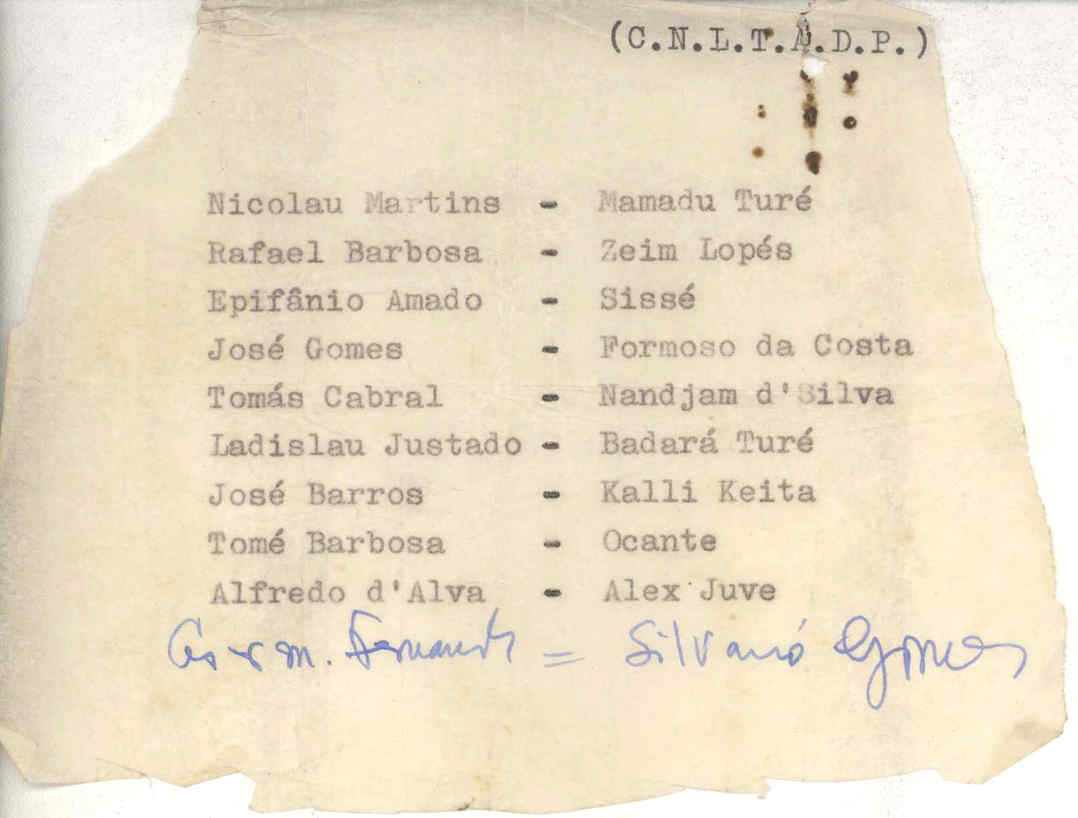 (C.N.L.T.A.D.P.)
Nicolau Martins - Mamadu Turé
Rafael Barbosa - Zeim Lopés
Epifânio Amado - Sissé
José Gomes - Formoso da Costa
Tomás Cabral - Nandjam d'Silva
Ladislau Justado - Badará Turé
José Barros - Kalli Keita
Tomé Barbosa - Ocante
Alfredo d'Alva - Alex Juve
m. Fernands = Silvanó Gomes